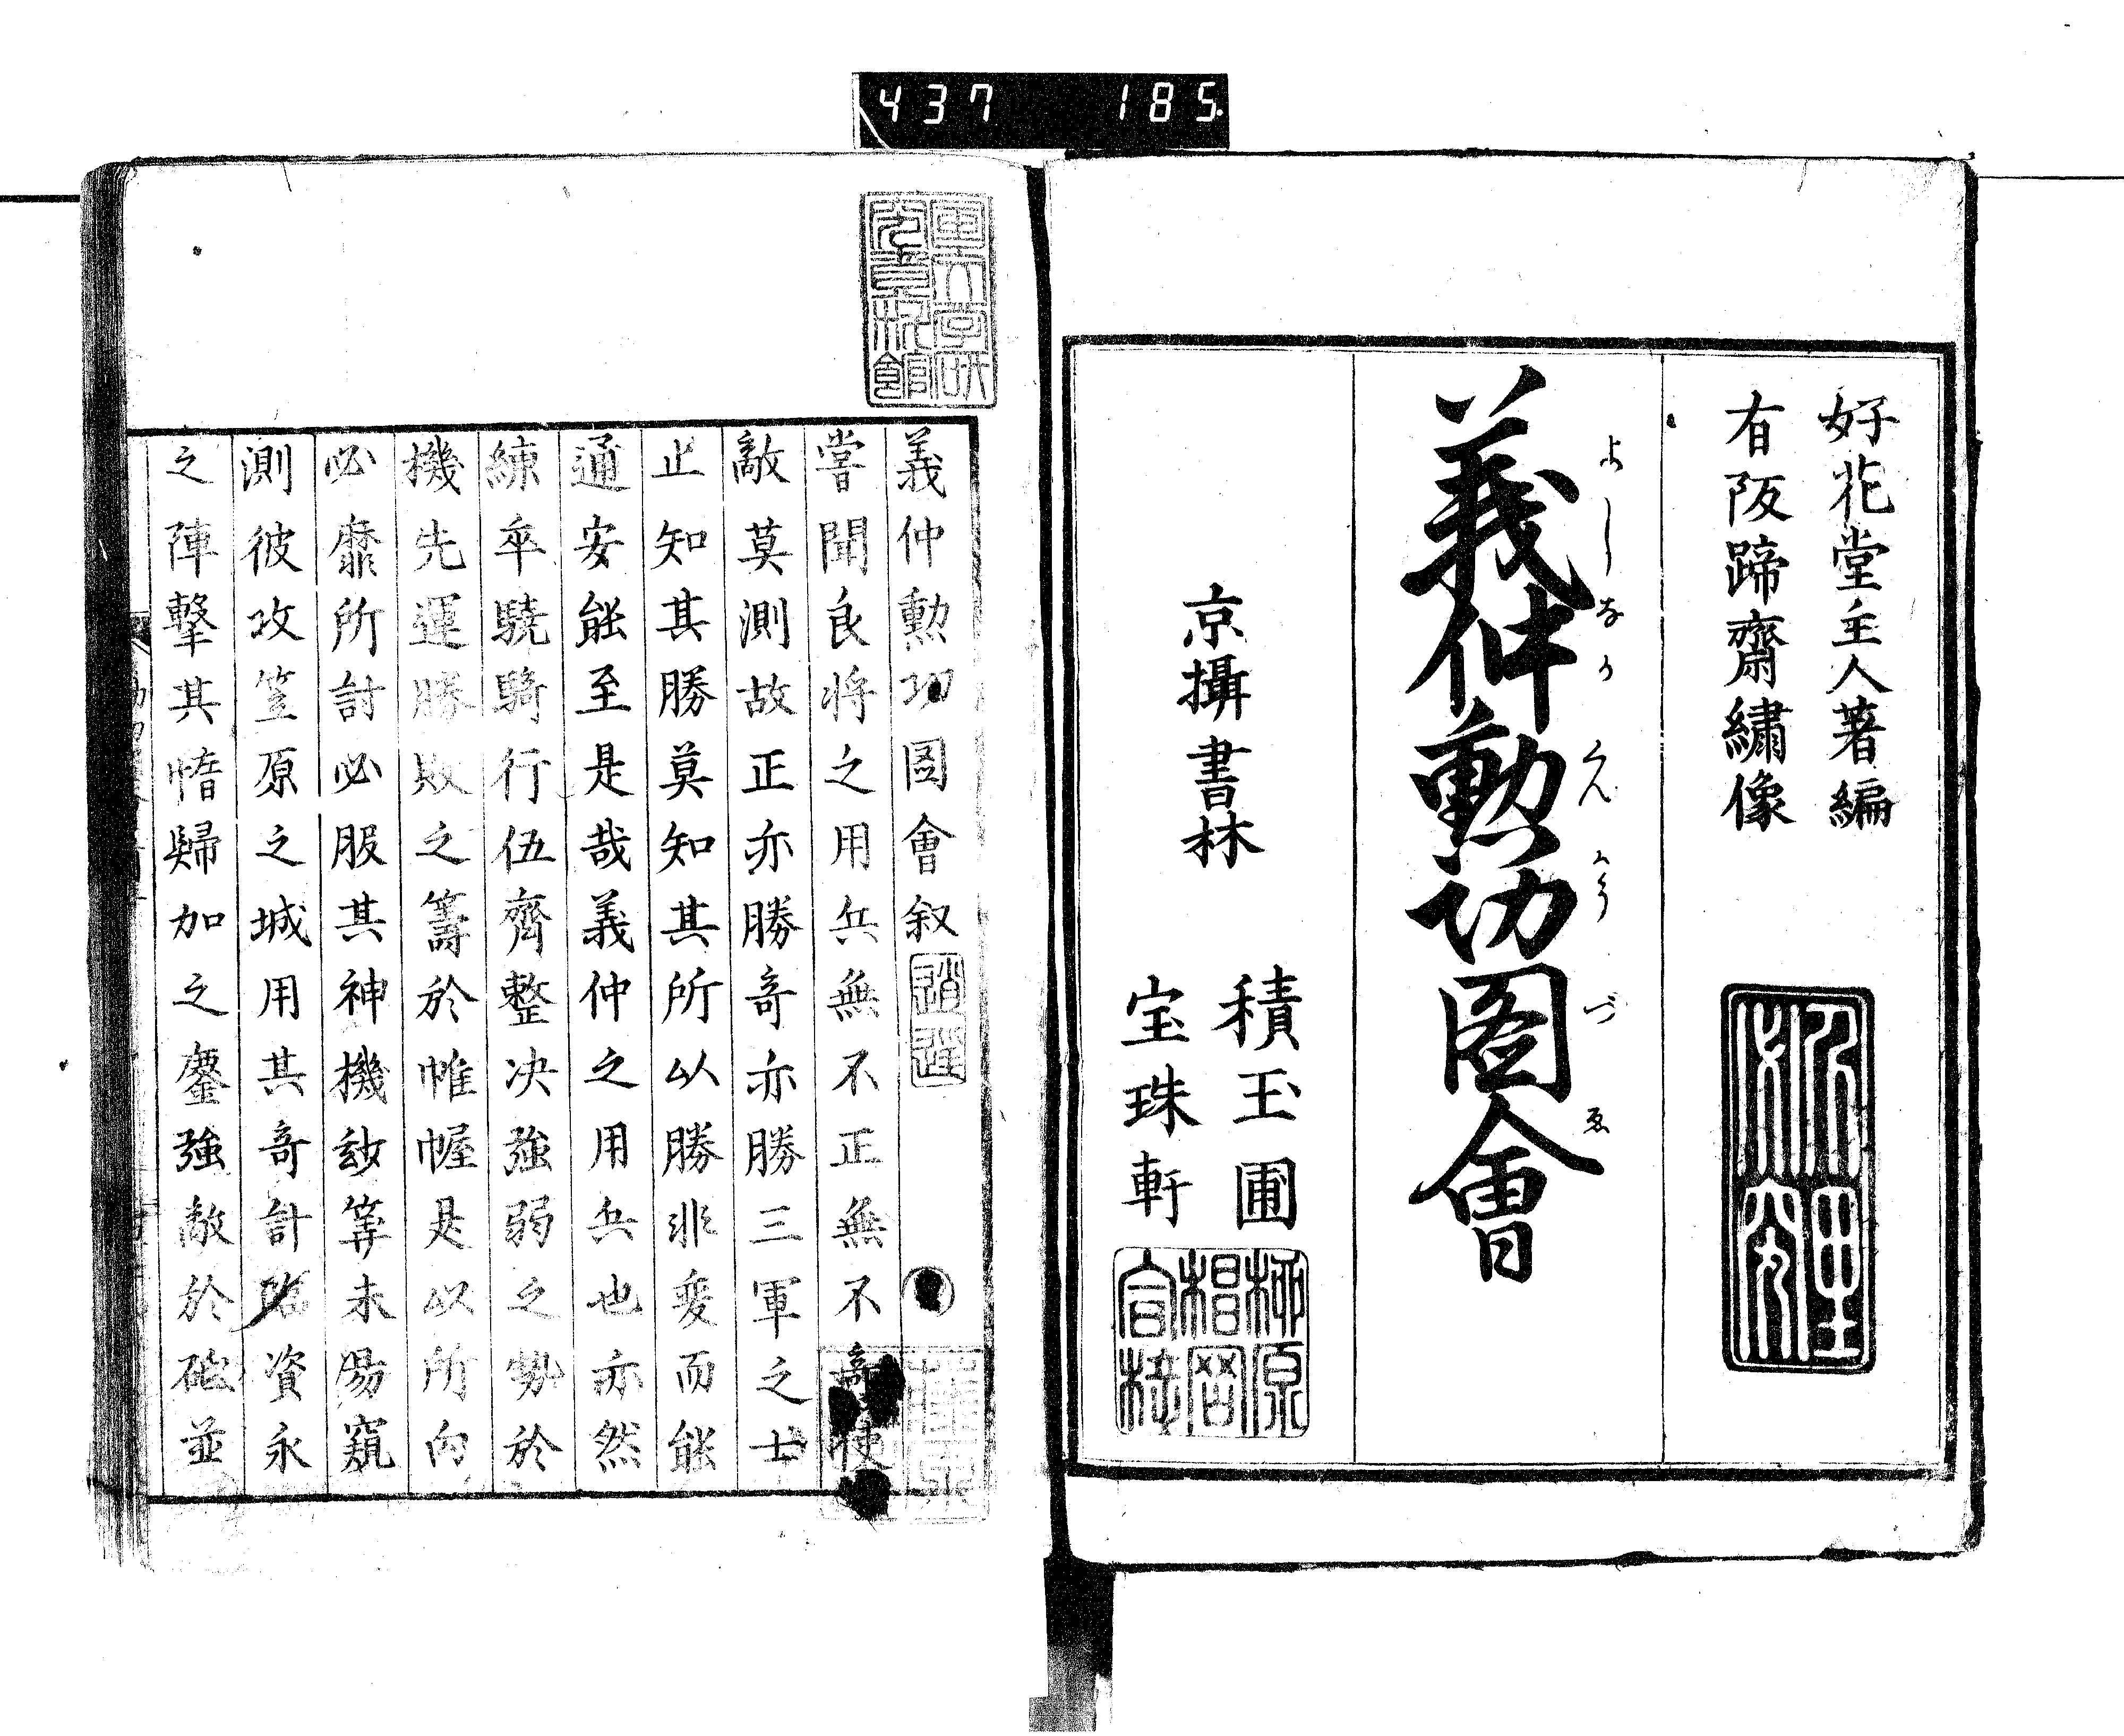 437 185
好花堂主人著編
有阪蹄齋繡像
義仲勲功圖會
よしなかくんこうづゑ
京攝書林
積玉圃
宝珠軒
義仲勲功圖會叙
嘗聞良将之用兵無不正無不竒使
敵莫測故正亦勝竒亦勝三軍之士
止知其勝莫知其所以勝非変而能
通安能至是哉義仲之用兵也亦然
練卒驍騎行伍齊整决強弱之勢於
機先運勝敗之籌於帷幄是以所向
必靡所討必服其神機玅筭未易窺
測彼攻笠原之城用其竒計臨資永
之陣擊其惰歸加之鏖強敵於砥並